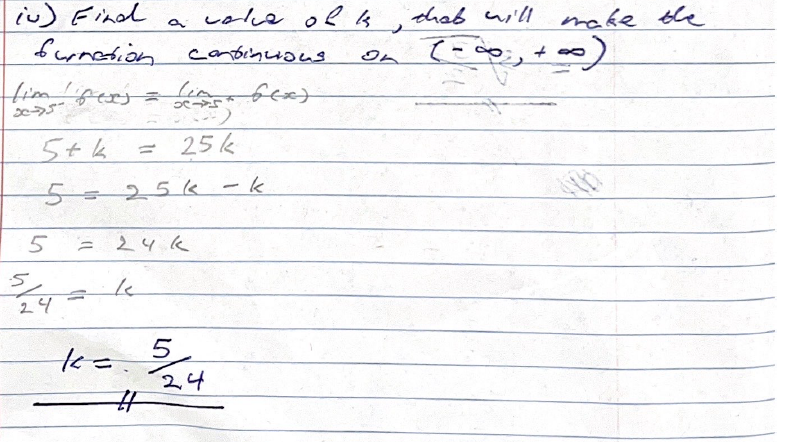 iv) Find a value of k, that will make the
function continuous on (-∞, +∞)
lim x→5⁻ f(x) = lim x→5⁺ f(x)
5 + k = 25k
5 = 25k - k
5 = 24k
5/24 = k
k = 5/24